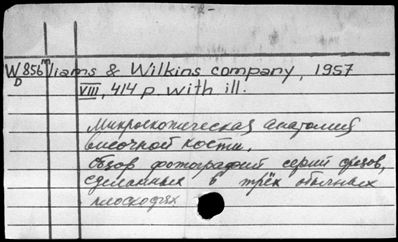 -2-
W 856m liams & Wilkins company, 1957
D
VIII, 414 p. with ill.
Микроскопическая анатомия
височной кости.
Обзор фотографий серий срезов,
сделанных в трёх обычных
плоскостях